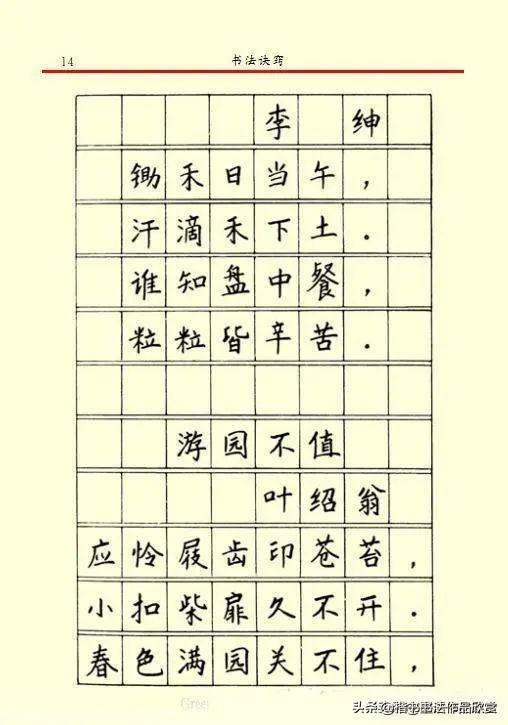 14 书法诀窍
李 绅
锄禾日当午，
汗滴禾下土.
谁知盘中餐，
粒粒皆辛苦.
游园不值
叶绍翁
应怜屐齿印苍苔，
小扣柴扉久不开.
春色满园关不住，
Green
头条@楷书书法作品欣赏